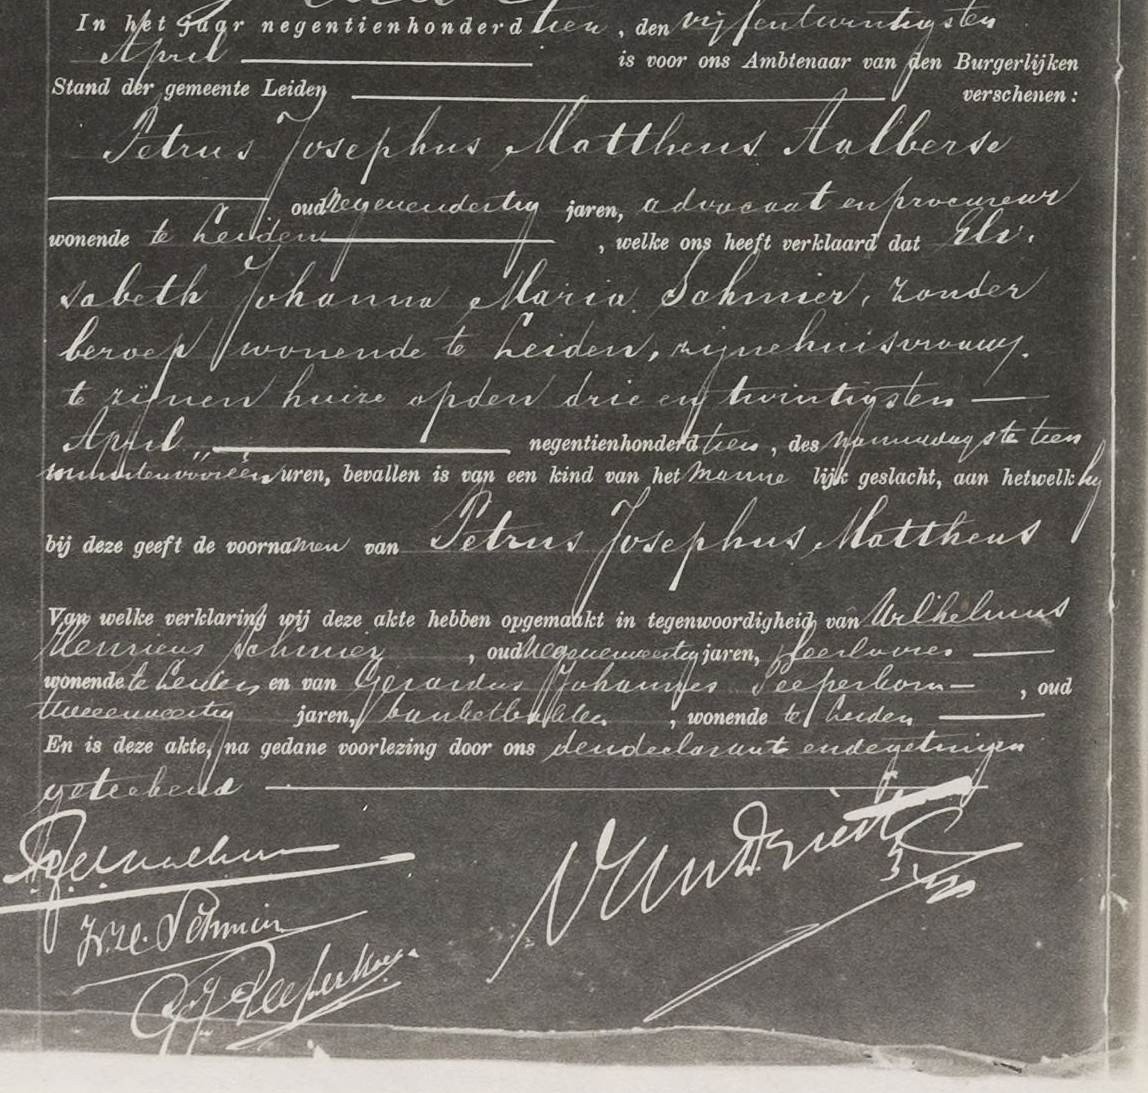 In het jaar negentienhonderd tien, den vijfentwintigsten
April is voor ons Ambtenaar van den Burgerlijken
Stand der gemeente Leiden verschenen:
Petrus Josephus Mattheus Aalberse
oud negenendertig jaren, advocaat en procureur
wonende te Leiden, welke ons heeft verklaard dat Eli-
sabeth Johanna Maria Schmier, zonder
beroep wonende te Leiden, zijne huisvrouw,
te zijnen huize op den drie en twintigsten
April negentienhonderd tien, des namiddags te tien
minuten voor één uren, bevallen is van een kind van het mannelijk geslacht, aan hetwelk hij
bij deze geeft de voornamen van Petrus Josephus Mattheus
Van welke verklaring wij deze akte hebben opgemaakt in tegenwoordigheid van Wilhelmus
Henricus Schmier, oud negenenveertig jaren,
wonende te Leiden, en van Gerardus Johannes Peeperkorn, oud
tweeenveertig jaren, banketbakker, wonende te Leiden
En is deze akte, na gedane voorlezing door ons, den declarant en de getuigen
geteekend
W.H. Schmier
G.J. Peeperkorn